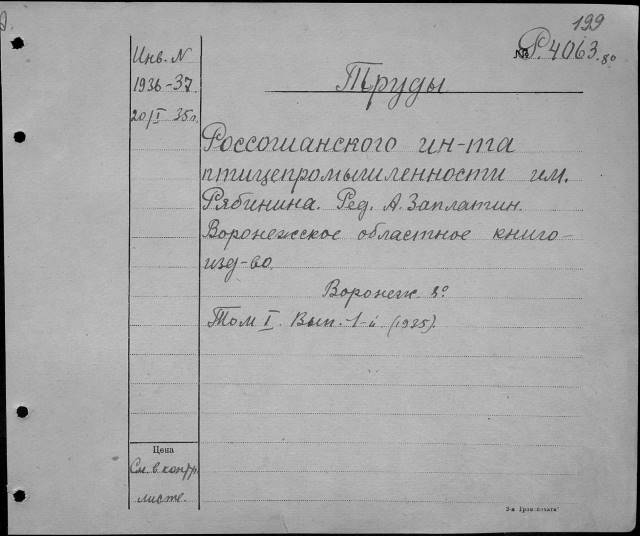 199
№ Р.4063.80
Инв. N
1936-37.
20/I 35г.
Труды
Россошанского ин-та
птицепромышленности им.
Рябинина. Ред. А. Заплатин.
Воронежское областное книго-
изд-во.
Воронеж. 8º
Том I. Вып. 1-й (1935).
Цена
См. в контр.
листе.